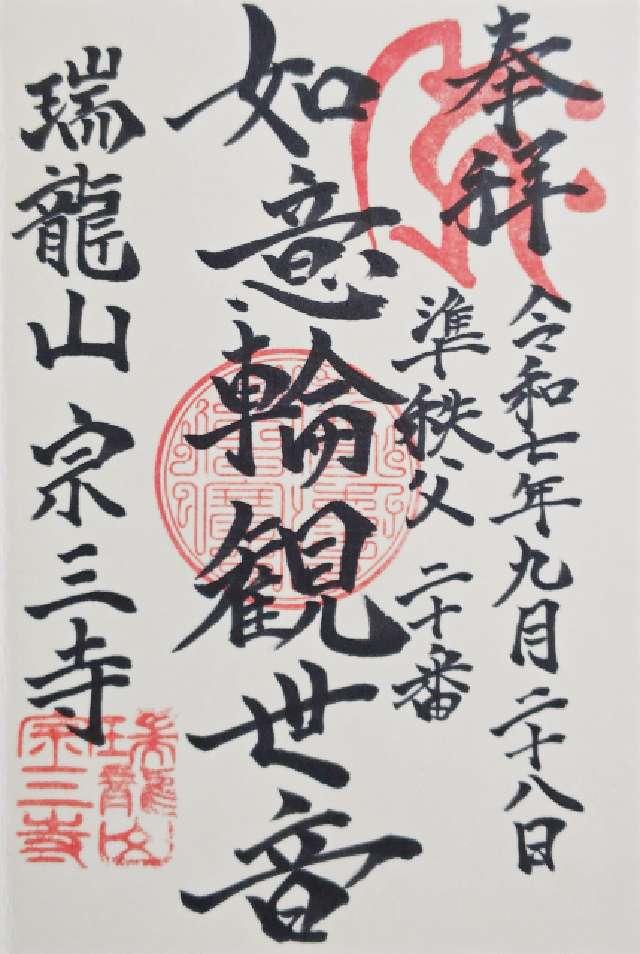 奉拝
令和七年九月二十八日
準秩父 二十番
如意輪観世音
瑞龍山 宗三寺
瑞龍山
宗三寺